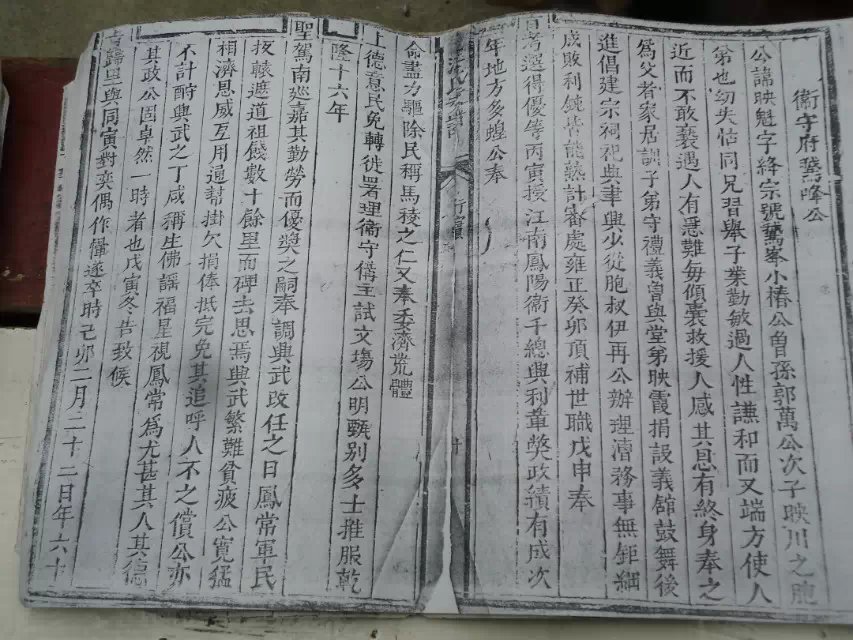 衛守府鰲峰公
公諱映魁字絳宗號鰲峯小椿公曾孫郭萬公次子映川之胞
弟也幼失怙同兄習舉子業勤敏過人性謙和而又端方使人
近而不敢褻遇人有急難每傾囊救援人感其恩有終身奉之
為父者家居訓子弟守禮義曾與堂弟映霞捐設義舘鼓舞後
進倡建宗祠祀典聿興少從胞叔伊再公辦理漕務事無鉅細
成敗利鈍皆能熟計審處雍正癸卯頂補世職戊申奉
旨考選得優等丙寅授江南鳳陽衛千總興利革獘政績有成次
年地方多蝗公奉
命盡力驅除民稱馬稜之仁又奉委濟荒體
上德意民免轉徙署理衞守備主試文塲公明甄别多士推服乾
隆十六年
聖駕南廵嘉其勤勞而優奬之嗣奉調興武政任之日鳳常軍民
扳轅遮道祖餞數十餘里而碑去思焉興武繁難貧疲公寬猛
相濟恩威互用遠幇掛欠捐俸抵完免其追呼人不之償公亦
不計酧興武之丁咸稱生佛謡福星視鳳常為尤甚其人其德
其政公固卓然一時者也戊寅冬告致候
旨歸里與同寅對奕偶作僊逰卒時己卯二月二十二日年六十